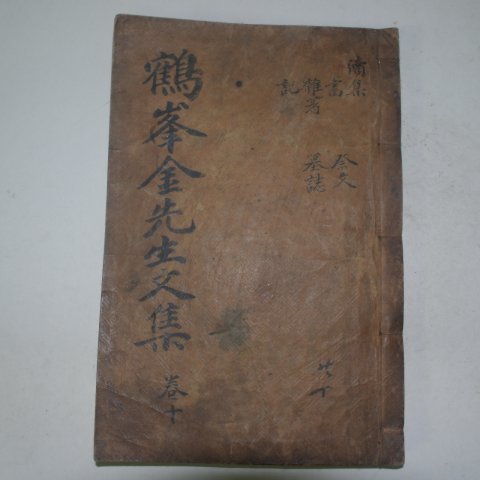 續集
書
雜著
記
祭文
墓誌
鶴峯金先生文集
卷十
共十